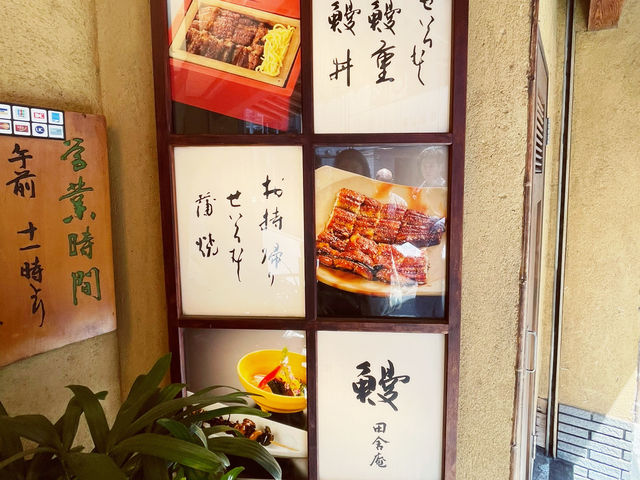 営業時間
午前 十一時より
せいろむし
鰻重
鰻丼
お持帰り
せいろむし
蒲焼
鰻
田舎庵